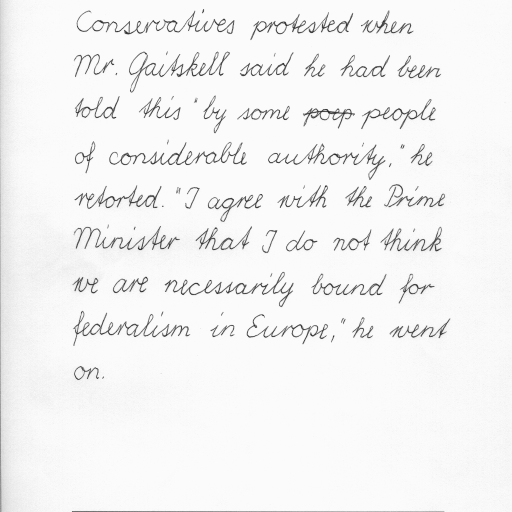 Conservatives protested when
Mr. Gaitskell said he had been
told this "by some poep people
of considerable authority," he
retorted. "I agree with the Prime
Minister that I do not think
we are necessarily bound for
federalism in Europe," he went
on.